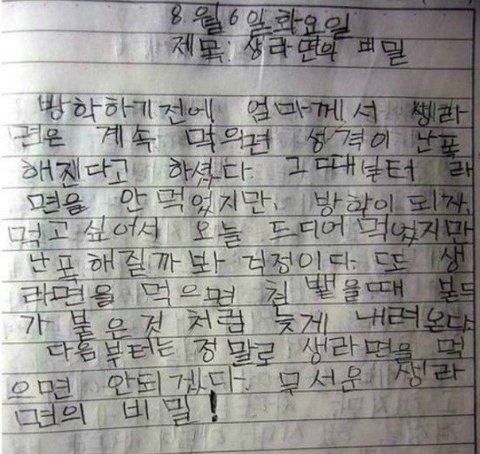 8월 6일 화요일
제목: 생라면의 비밀
방학하기전에 엄마께서 생라
면은 계속 먹으면 성격이 난폭
해진다고 하셨다. 그때부터 라
면을 안 먹었지만. 방학이 되자,
먹고 싶어서 오늘 드디어 먹었지만
난폭해질까봐 걱정이다. 또 생
라면을 먹으면 침 뱉을때 본드
가 붙은것 처럼 늦게 내려온다.
다음부터는 정말로 생라면을 먹
으면 안되겠다. 무서운 생라
면의 비밀!